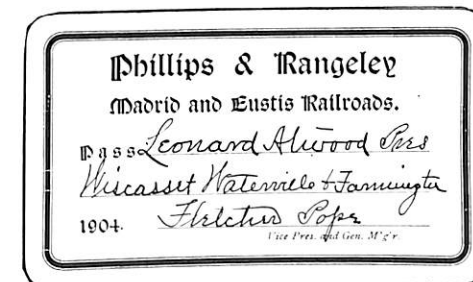 Phillips & Rangeley
Madrid and Eustis Railroads.
Pass Leonard Atwood Pres
Wiscasset Waterville & Farmington
1904. Fletcher Pope
Vice Pres. and Gen. M'g'r.